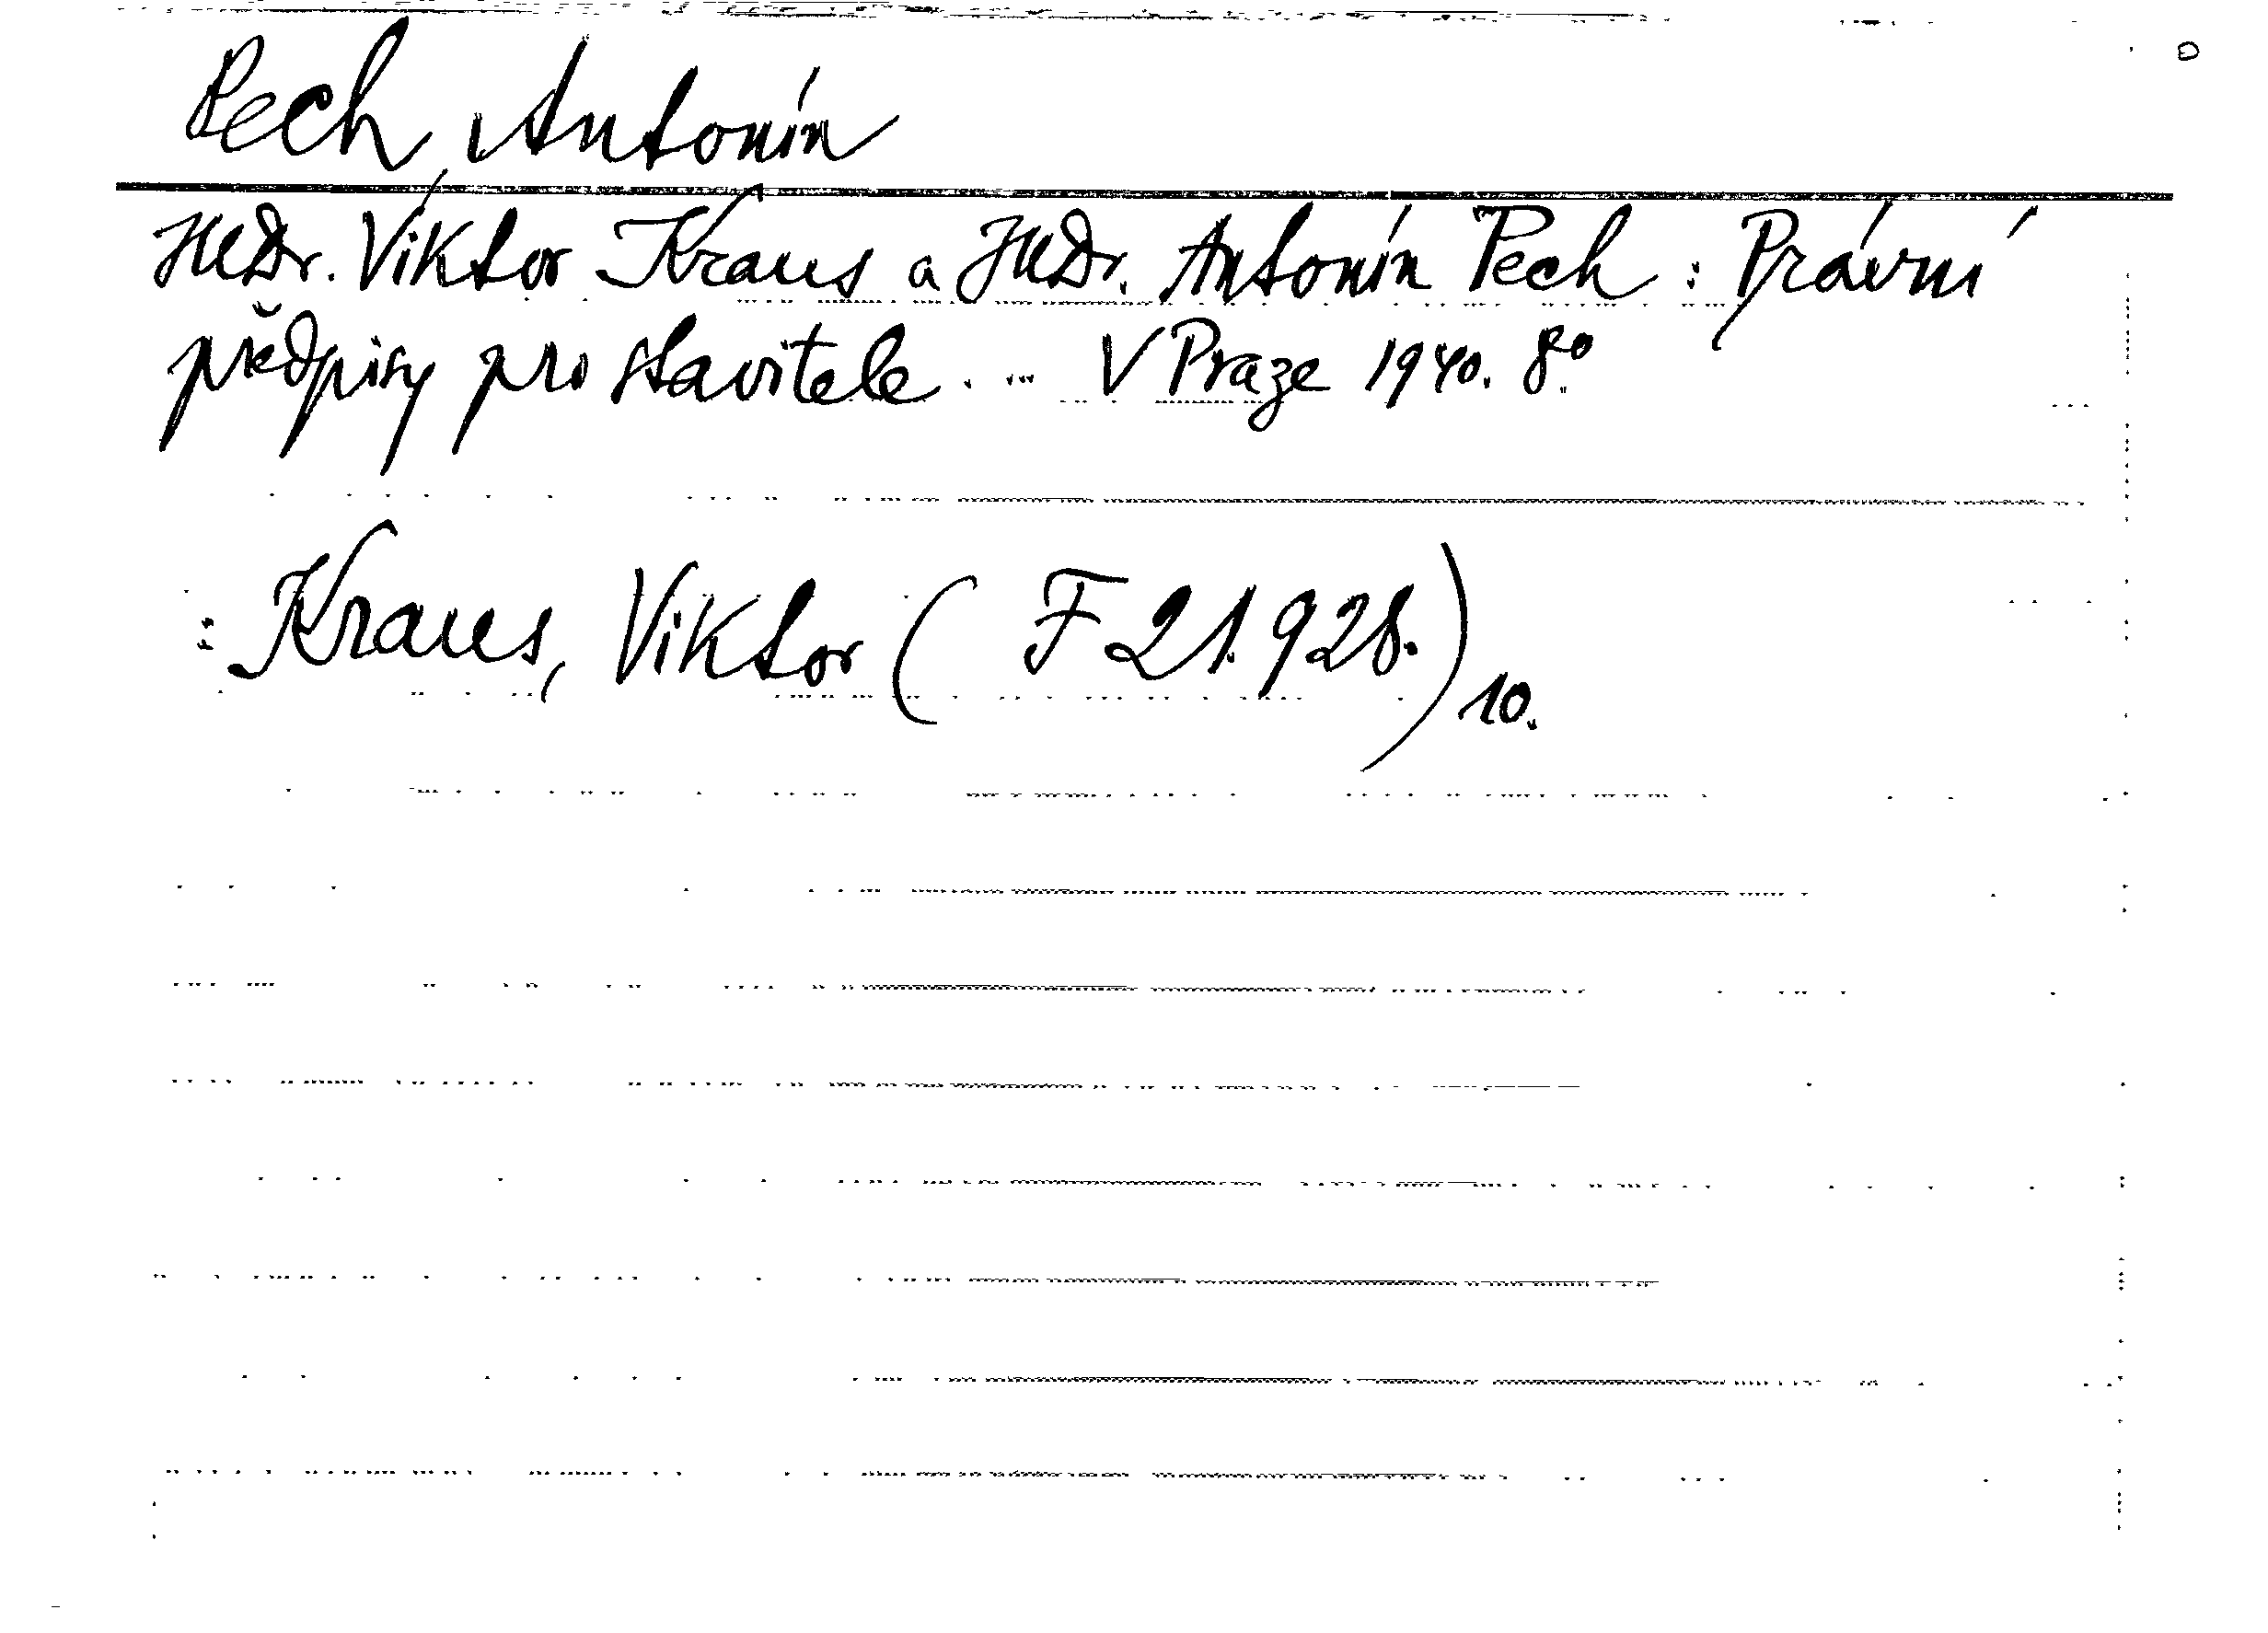 Pech Antonín
JUDr. Viktor Kraus a JUDr. Antonín Pech : Právní
předpisy pro stavitele. ... V Praze 1940. 8°.
: Kraus, Viktor ( F 21.928. ) 10.